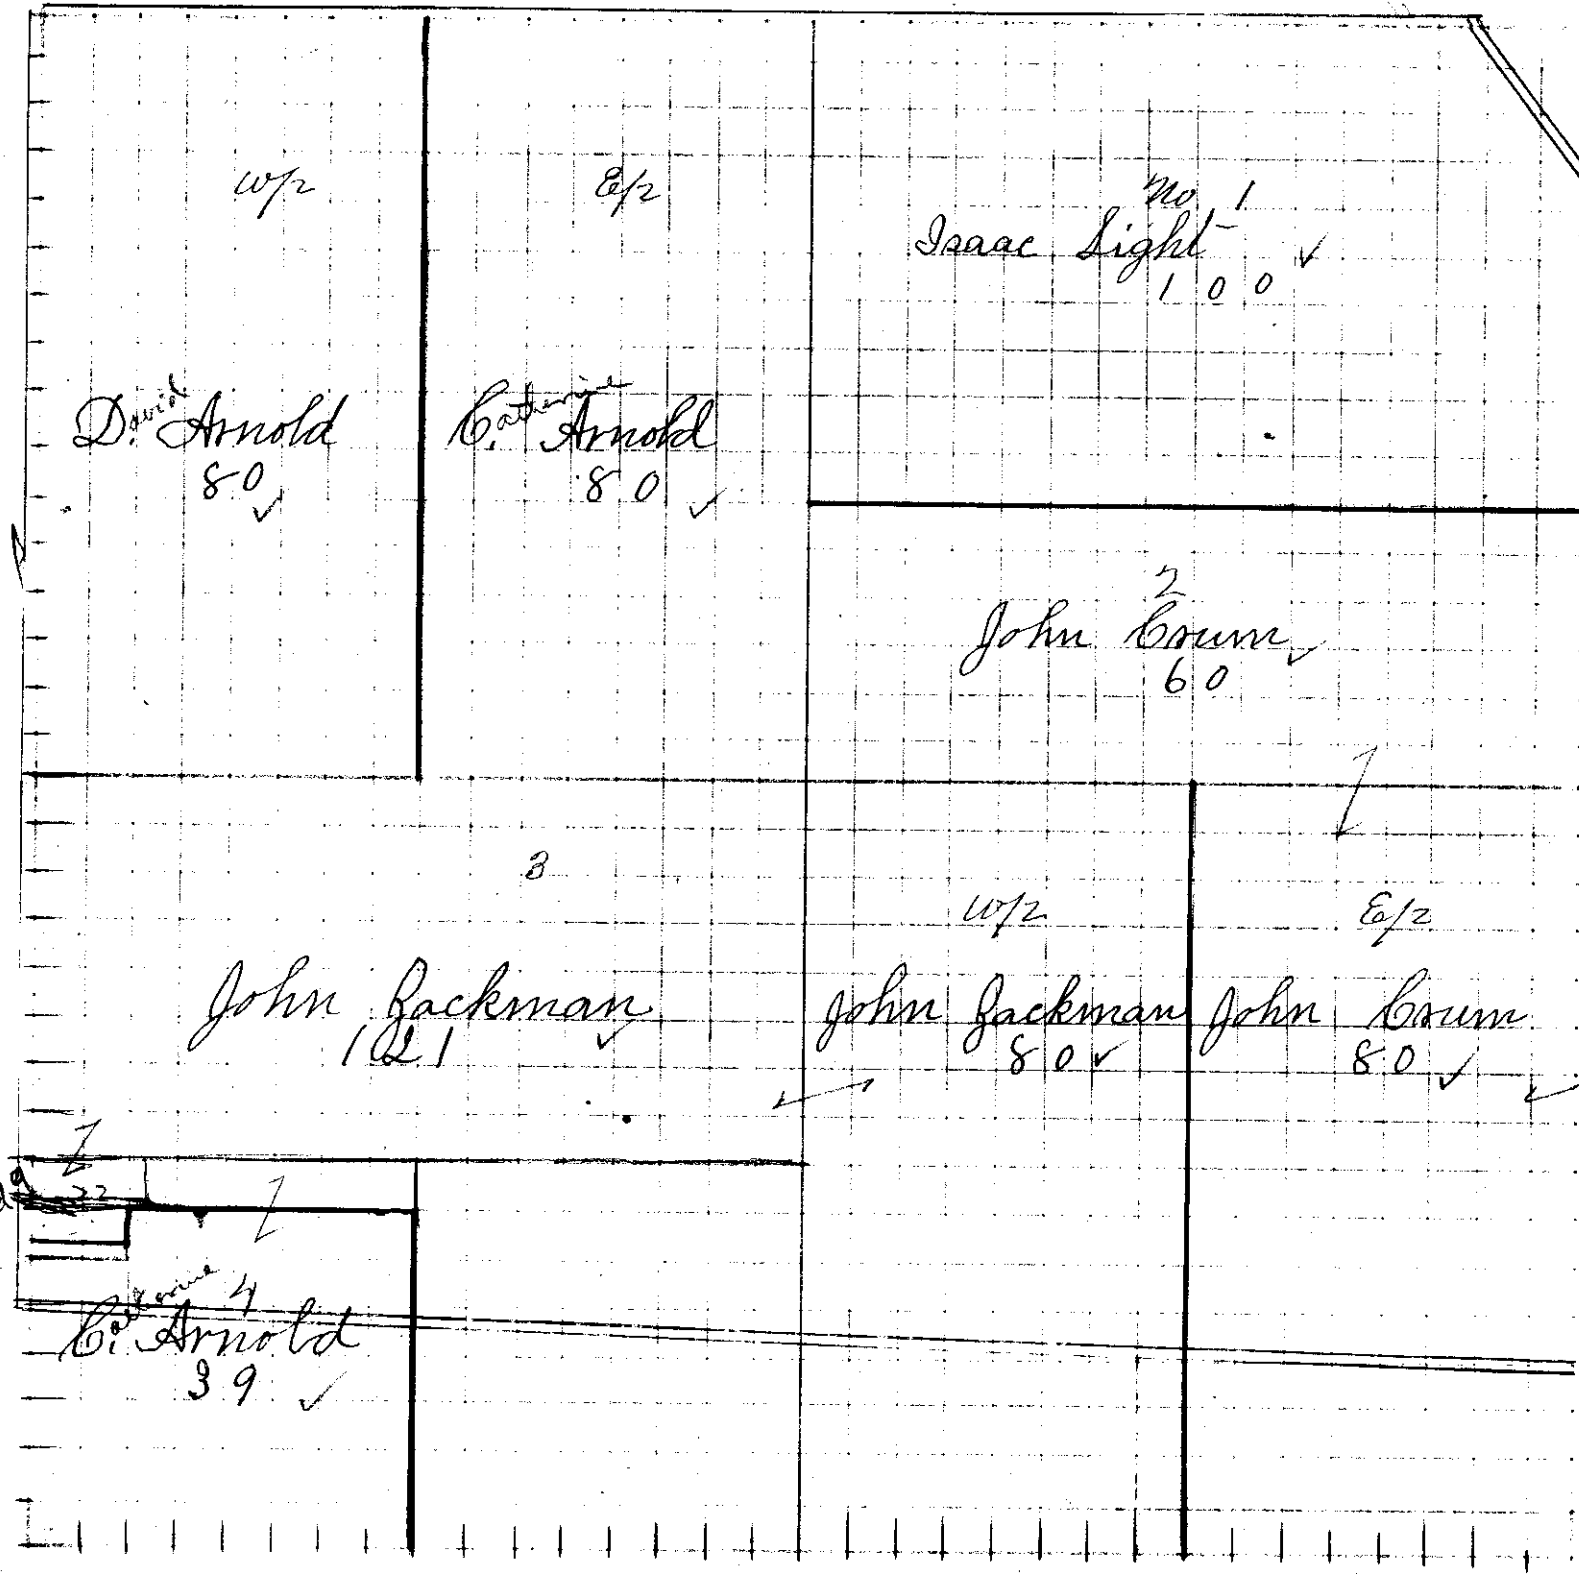 W/2
David
D. Arnold
80
E/2
Catherine
C. Arnold
80
No 1
Isaac Light
100
2
John Crum
60
3
John Zackman
121
W/2
John Zackman
80
E/2
John Crum
80
22
Catherine 4
C. Arnold
39